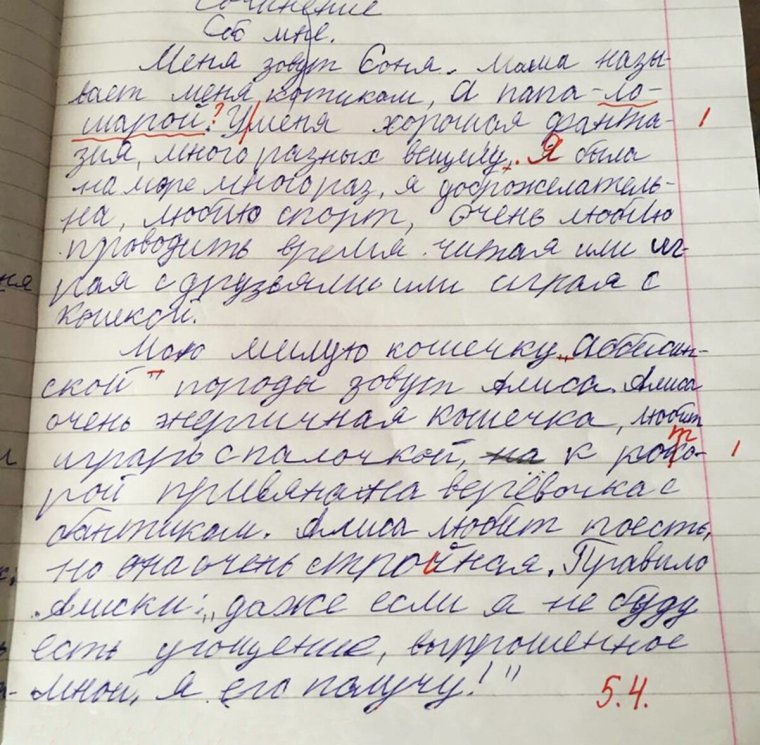 Сочинение
Обо мне.
Меня зовут Соня. Мама назы-
вает меня котиком, а папа - ло-
шарой.? У меня хорошая фанта-
зия, много разных вещему. Я была
на море много раз, я доброжелатель-
на, люблю спорт, очень люблю
проводить время читая или иг-
рая с друзьями или играя с
кошкой.
Мою милую кошечку „Аббесин-
ской" породы зовут Алиса. Алиса
очень энергичная кошечка, любит
играть с палочкой, на к которо-
рой привязана верёвочка с
бантиком. Алиса любит поесть,
но она очень стройная. Правило
Алиски: „даже если я не буду
есть угощение, выпрошенное
мной, я его получу!"
5.4.